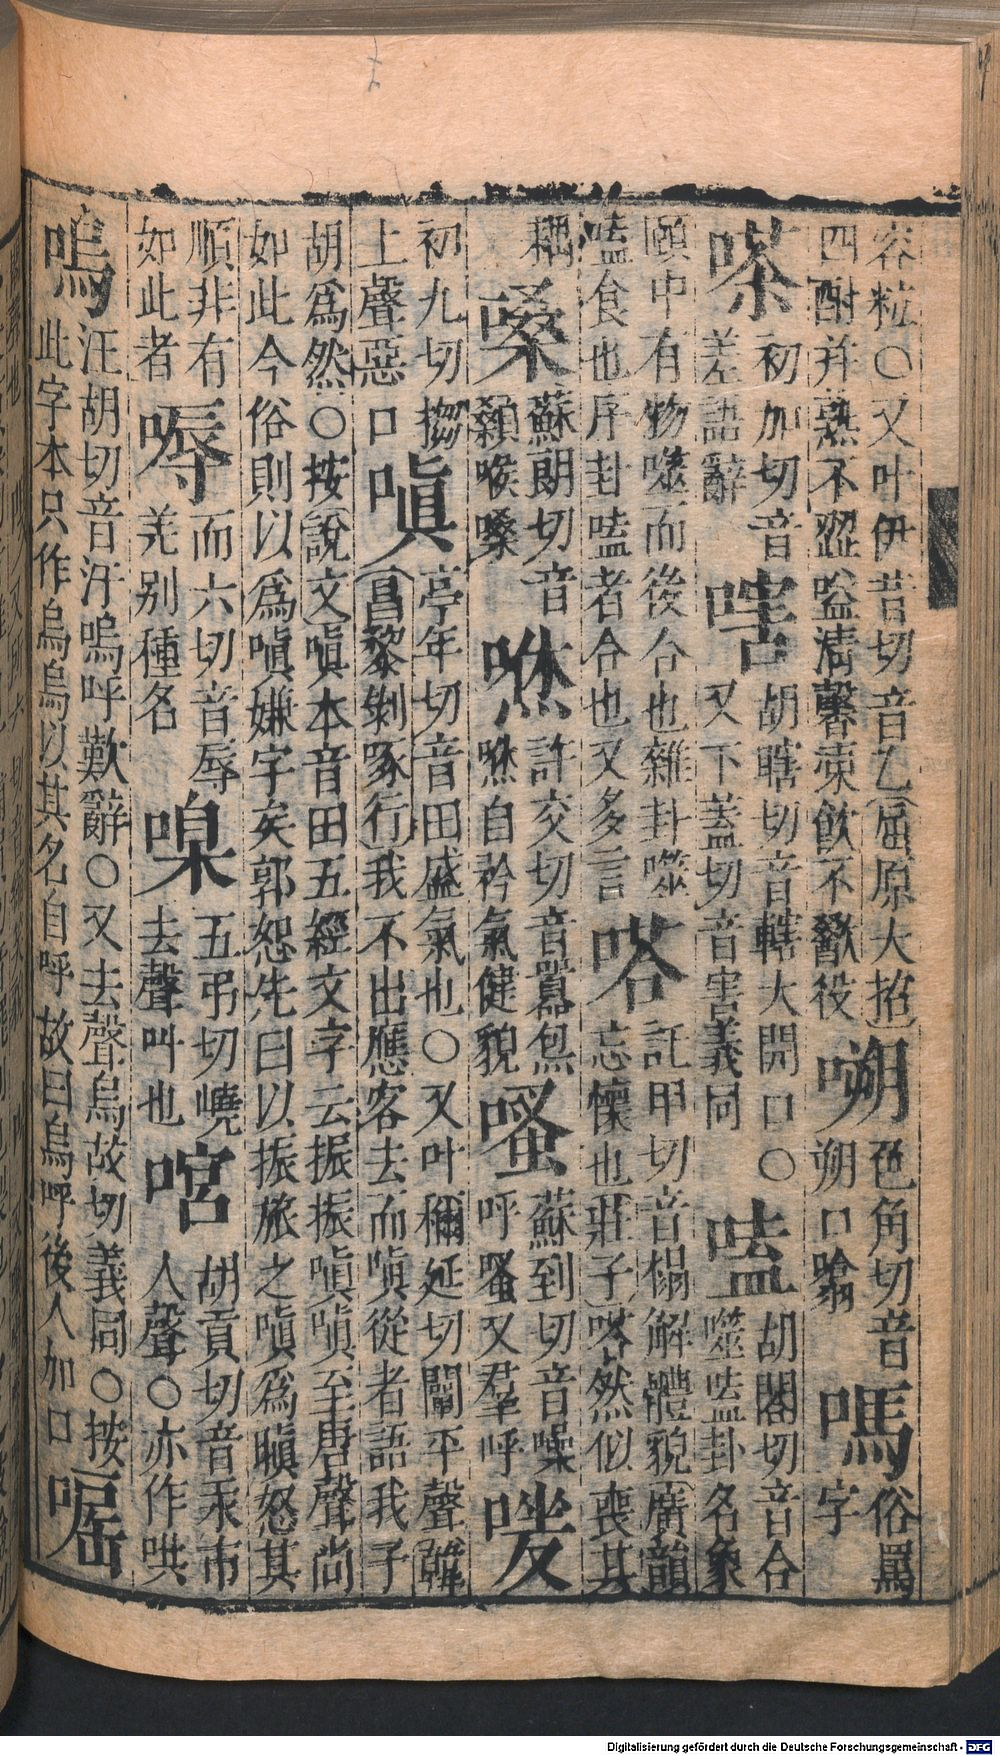 容粒○又叶伊昔切音乙(屈原大招)四酎并孰不澀嗌淸馨凍飮不歠役嗍色角切音朔口噏嗎俗罵字
嗏初加切音差語辭嗐胡瞎切音轄大開口○又下蓋切音害義同嗑胡閤切音合噬嗑卦名象
頤中有物噬而後合也雜卦噬嗑食也序卦嗑者合也又多言嗒託甲切音榻解體貌(廣韻)忘懷也(莊子)嗒然似喪其
耦嗓蘇朗切音顙喉嗓許交切音囂炰自矜氣健貌蘇到切音噪呼又羣呼
初九切搊上聲惡口嗔亭年切音田盛氣也○又叶稱延切闡平聲(韓昌黎剝啄行)我不出應客去而嗔從者語我子
胡爲然○按(說文)嗔本音田五經文字云振振嗔嗔至唐聲尚如此今俗則以爲嗔嫌字矣郭恕先曰以振旅之嗔爲瞋怒其
順非有如此者嗕而六切音辱羌别種名五弔切嶢去聲叫也㗢胡貢切音汞市人聲○亦作哄
嗚汪胡切音汙嗚呼歎辭○又去聲烏故切義同○按此字本只作烏烏以其名自呼故曰烏呼後人加口
Digitalisierung gefördert durch die Deutsche Forschungsgemeinschaft - DFG